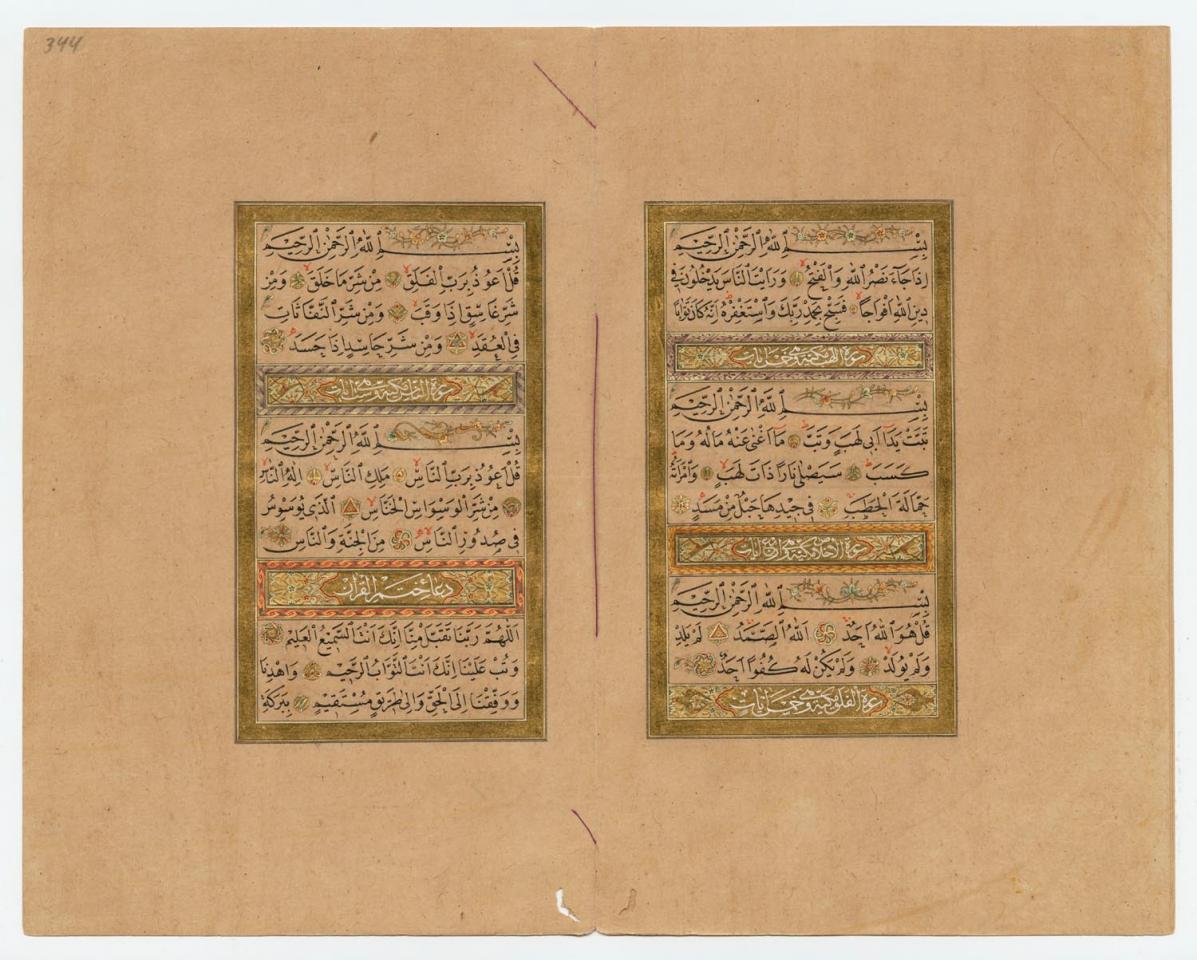 344
بِسْمِ اللّٰهِ الرَّحْمٰنِ الرَّحِيمِ
اِذَا جَاءَ نَصْرُ اللّٰهِ وَالْفَتْحُ وَرَاَيْتَ النَّاسَ يَدْخُلُونَ فِى
دِينِ اللّٰهِ اَفْوَاجًا فَسَبِّحْ بِحَمْدِ رَبِّكَ وَاسْتَغْفِرْهُ اِنَّهُ كَانَ تَوَّابًا
سورة اللهب مكية وهى خمس ايات
بِسْمِ اللّٰهِ الرَّحْمٰنِ الرَّحِيمِ
تَبَّتْ يَدَا اَبِى لَهَبٍ وَتَبَّ مَا اَغْنٰى عَنْهُ مَالُهُ وَمَا
كَسَبَ سَيَصْلٰى نَارًا ذَاتَ لَهَبٍ وَامْرَاَتُهُ
حَمَّالَةَ الْحَطَبِ فِى جِيدِهَا حَبْلٌ مِنْ مَسَدٍ
سورة الاخلاص مكية وهى اربع ايات
بِسْمِ اللّٰهِ الرَّحْمٰنِ الرَّحِيمِ
قُلْ هُوَ اللّٰهُ اَحَدٌ اَللّٰهُ الصَّمَدُ لَمْ يَلِدْ
وَلَمْ يُولَدْ وَلَمْ يَكُنْ لَهُ كُفُوًا اَحَدٌ
سورة الفلق مكية وهى خمس ايات
بِسْمِ اللّٰهِ الرَّحْمٰنِ الرَّحِيمِ
قُلْ اَعُوذُ بِرَبِّ الْفَلَقِ مِنْ شَرِّ مَا خَلَقَ وَمِنْ
شَرِّ غَاسِقٍ اِذَا وَقَبَ وَمِنْ شَرِّ النَّفَّاثَاتِ
فِى الْعُقَدِ وَمِنْ شَرِّ حَاسِدٍ اِذَا حَسَدَ
سورة الناس مكية وهى ست ايات
بِسْمِ اللّٰهِ الرَّحْمٰنِ الرَّحِيمِ
قُلْ اَعُوذُ بِرَبِّ النَّاسِ مَلِكِ النَّاسِ اِلٰهِ النَّاسِ
مِنْ شَرِّ الْوَسْوَاسِ الْخَنَّاسِ اَلَّذِى يُوَسْوِسُ
فِى صُدُورِ النَّاسِ مِنَ الْجِنَّةِ وَالنَّاسِ
دعاء ختم القرآن
اَللّٰهُمَّ رَبَّنَا تَقَبَّلْ مِنَّا اِنَّكَ اَنْتَ السَّمِيعُ الْعَلِيمُ
وَتُبْ عَلَيْنَا اِنَّكَ اَنْتَ التَّوَّابُ الرَّحِيمُ وَاهْدِنَا
وَوَفِّقْنَا اِلَى الْحَقِّ وَاِلٰى طَرِيقٍ مُسْتَقِيمٍ بِبَرَكَةِ